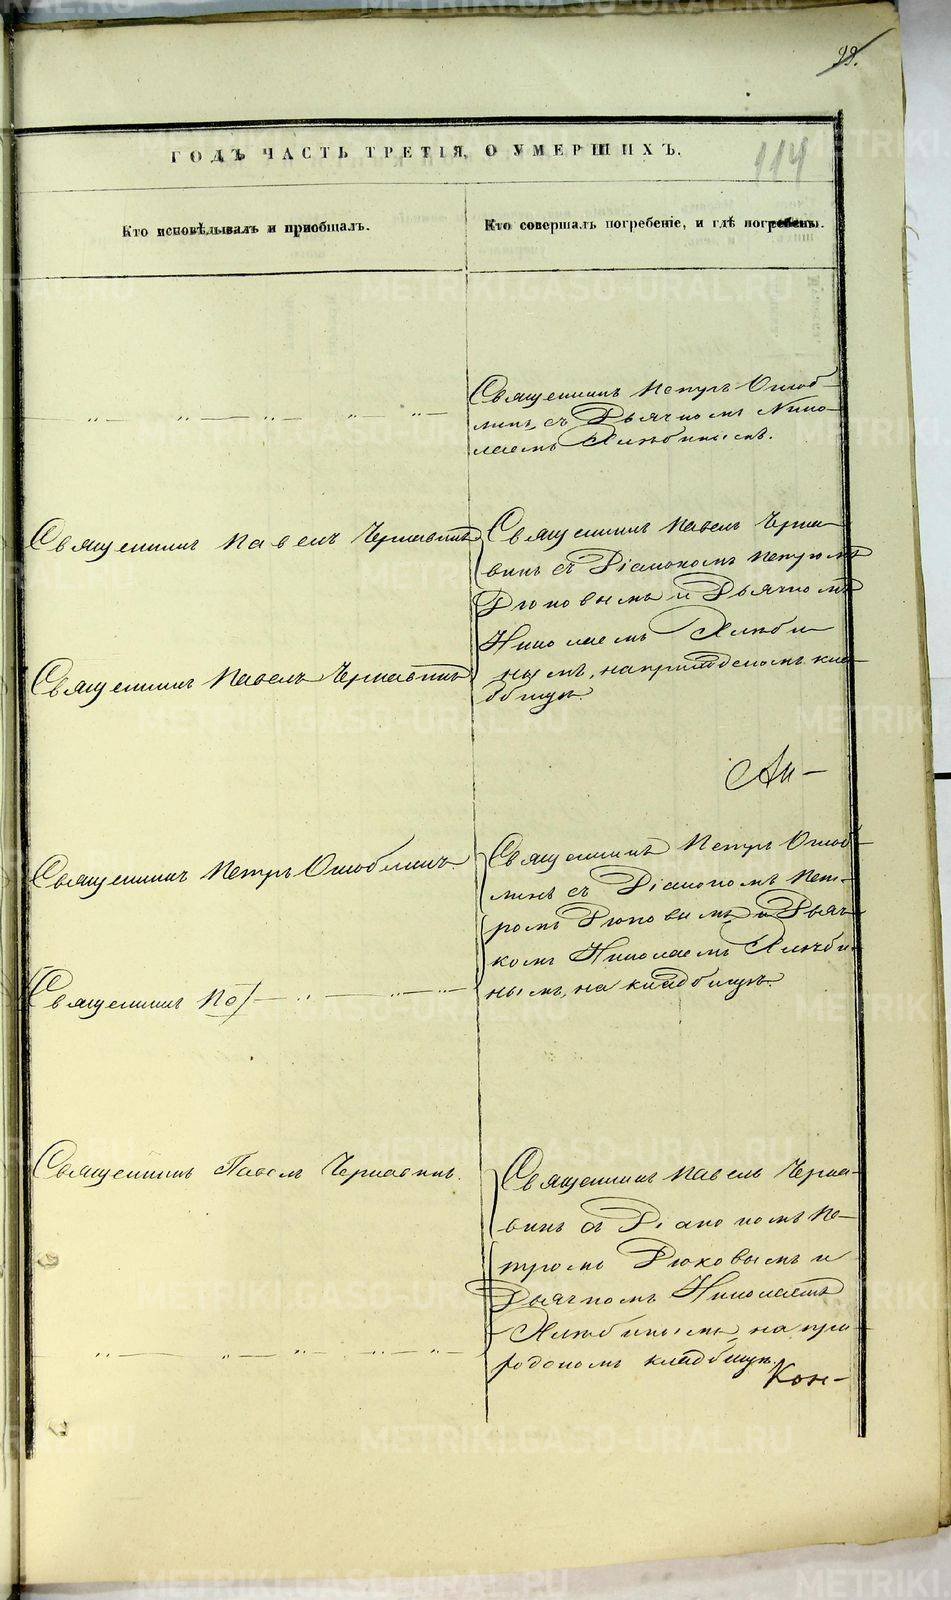 99.
114
ГОДЪ ЧАСТЬ ТРЕТІЯ, О УМЕРШИХЪ.
Кто исповѣдывалъ и пріобщалъ.
Кто совершалъ погребеніе, и гдѣ погребены.
Священникъ Петръ Оглоб-
линъ, съ Дьячкомъ Нико-
лаемъ
Священникъ Павелъ Чернавинъ
Священникъ Павелъ Черна-
винъ съ Діакономъ Петромъ
Дюковымъ и Дьячкомъ
Николаемъ
нымъ, на приходскомъ кла-
дбищѣ.
Священникъ Павелъ Чернавинъ
Священникъ Петръ Оглоблинъ.
Священникъ Петръ Оглоб-
линъ съ Діакономъ Пет-
ромъ Дюковымъ и Дьяч-
комъ Николаемъ
нымъ, на кладбищѣ.
Священникъ
Священникъ Павелъ Чернавинъ.
Священникъ Павелъ Черна-
винъ съ Діакономъ Пе-
тромъ Дюковымъ и
Дьячкомъ Николаемъ
кладбищѣ.
Кон-
METRIKI.GASO-URAL.RU